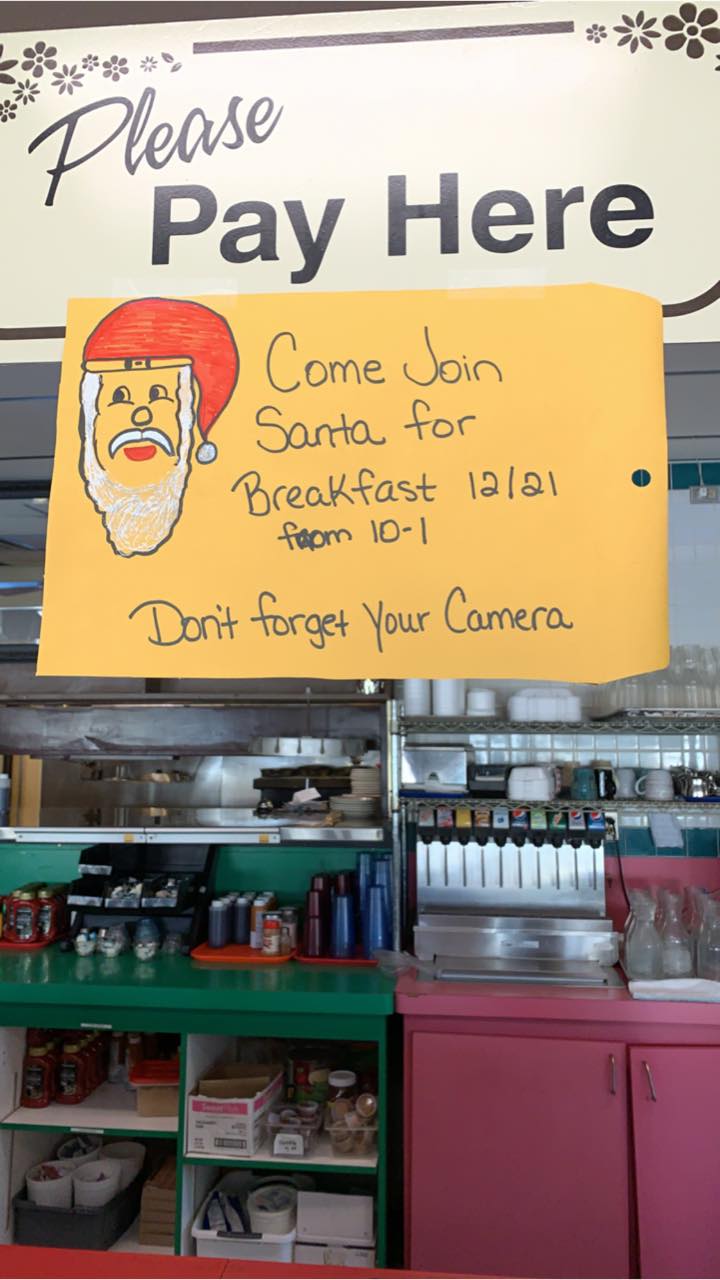 Please
Pay Here
Come Join
Santa for
Breakfast 12/21
from 10-1
Don't forget Your Camera